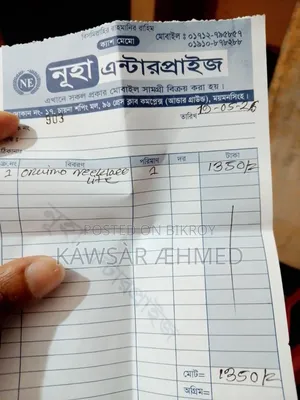 বিসমিল্লাহির রাহমানির রাহিম
ক্যাশ মেমো
মোবাইল : ০১৭১২-৭৯৫৮৫৭
০১৯১০-৮৭৮২৮৮
NE
নূহা এন্টারপ্রাইজ
এখানে সকল প্রকার মোবাইল সামগ্রী বিক্রয় করা হয়।
দোকান নং- ১৭, চায়না শপিং মল, ৯৬ প্রেস ক্লাব কমপ্লেক্স (আন্ডার গ্রাউন্ড), ময়মনসিংহ।
903
তারিখ
-05-26
ঠিকানা
বিবরণ
পরিমাণ
দর
টাকা
1
Oraimo Neckband
Lite
1
1350/=
নূহা এন্টারপ্রাইজ
POSTED ON BIKROY
KAWSAR ÆHMED
মোট=
1350/=
অগ্রিম=